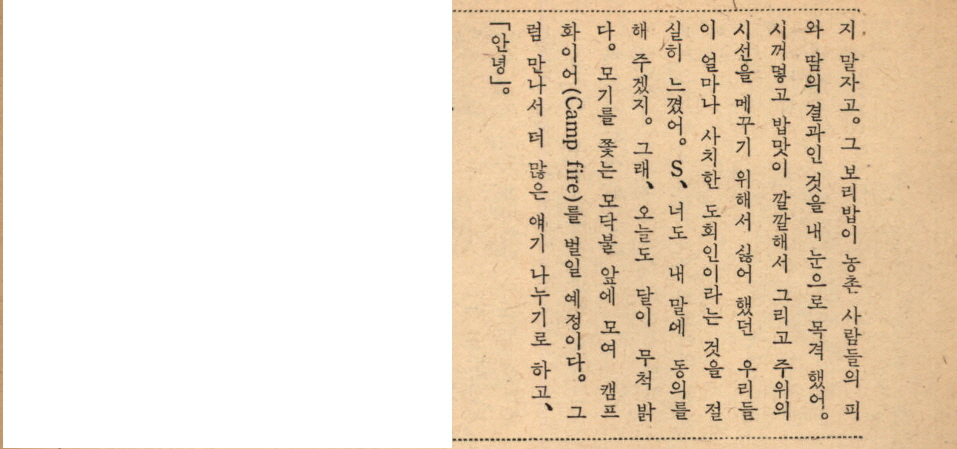 지 말자고。그 보리밥이 농촌 사람들의 피
와 땀의 결과인 것을 내 눈으로 목격했어。
시꺼멓고 밥맛이 깔깔해서 그리고 주위의
시선을 메꾸기 위해서 싫어 했던 우리들
이 얼마나 사치한 도회인이라는 것을 절
실히 느꼈어。S、너도 내 말에 동의를
해 주겠지。그래、오늘도 달이 무척 밝
다。모기를 쫓는 모닥불 앞에 모여 캠프
화이어(Camp fire)를 벌일 예정이다。그
럼 만나서 더 많은 얘기 나누기로 하고、
「안녕」。